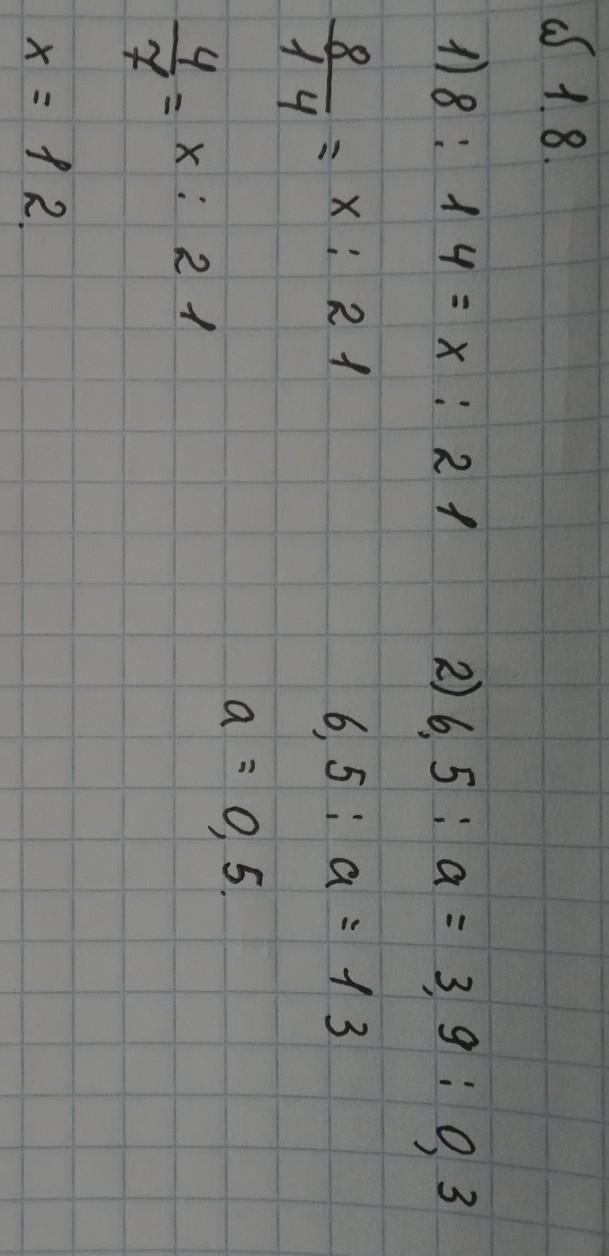 № 1.8.
1) 8 : 14 = x : 21
8/14 = x : 21
4/7 = x : 21
x = 12.
2) 6,5 : a = 3,9 : 0,3
6,5 : a = 13
a = 0,5.